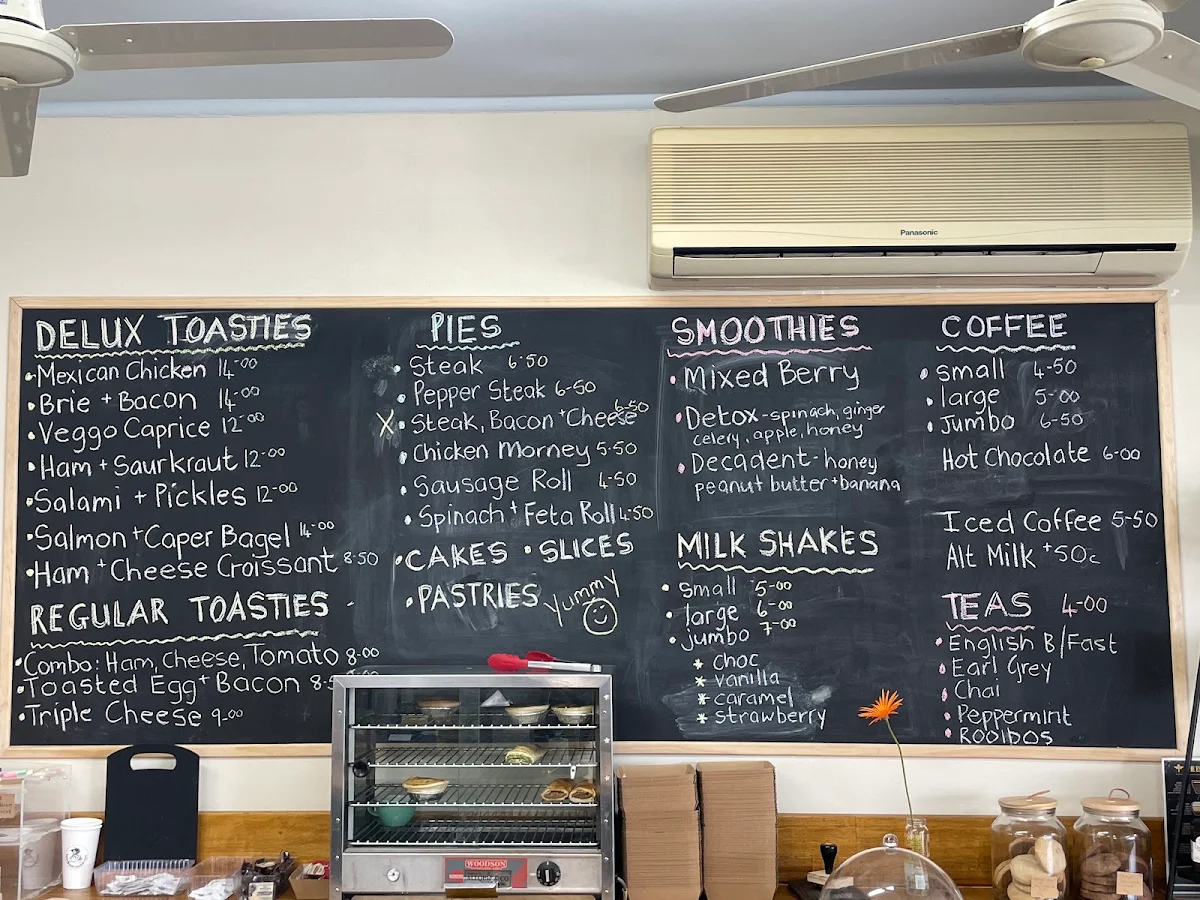 Panasonic
DELUX TOASTIES
•Mexican Chicken 14-00
•Brie + Bacon 14-00
•Veggo Caprice 12-00
•Ham + Saurkraut 12-00
•Salami + Pickles 12-00
•Salmon + Caper Bagel 14-00
•Ham + Cheese Croissant 8-50
REGULAR TOASTIES
•Combo: Ham, Cheese, Tomato 8-00
•Toasted Egg + Bacon
•Triple Cheese 9-00
PIES
• Steak 6-50
• Pepper Steak 6-50
X • Steak, Bacon + Cheese 6-50
• Chicken Morney 5-50
• Sausage Roll 4-50
• Spinach + Feta Roll 4-50
• CAKES • SLICES
• PASTRIES Yummy
SMOOTHIES
• Mixed Berry
• Detox - spinach, ginger
celery, apple, honey
• Decadent - honey
peanut butter + banana
MILK SHAKES
• small 5-00
• large 6-00
• jumbo 7-00
* choc
* vanilla
* caramel
* strawberry
COFFEE
• small 4-50
• large 5-00
• Jumbo 6-50
Hot Chocolate 6-00
Iced Coffee 5-50
Alt Milk +50c
TEAS 4-00
• English B/Fast
• Earl Grey
• Chai
• Peppermint
• ROOIBOS
WOODSON